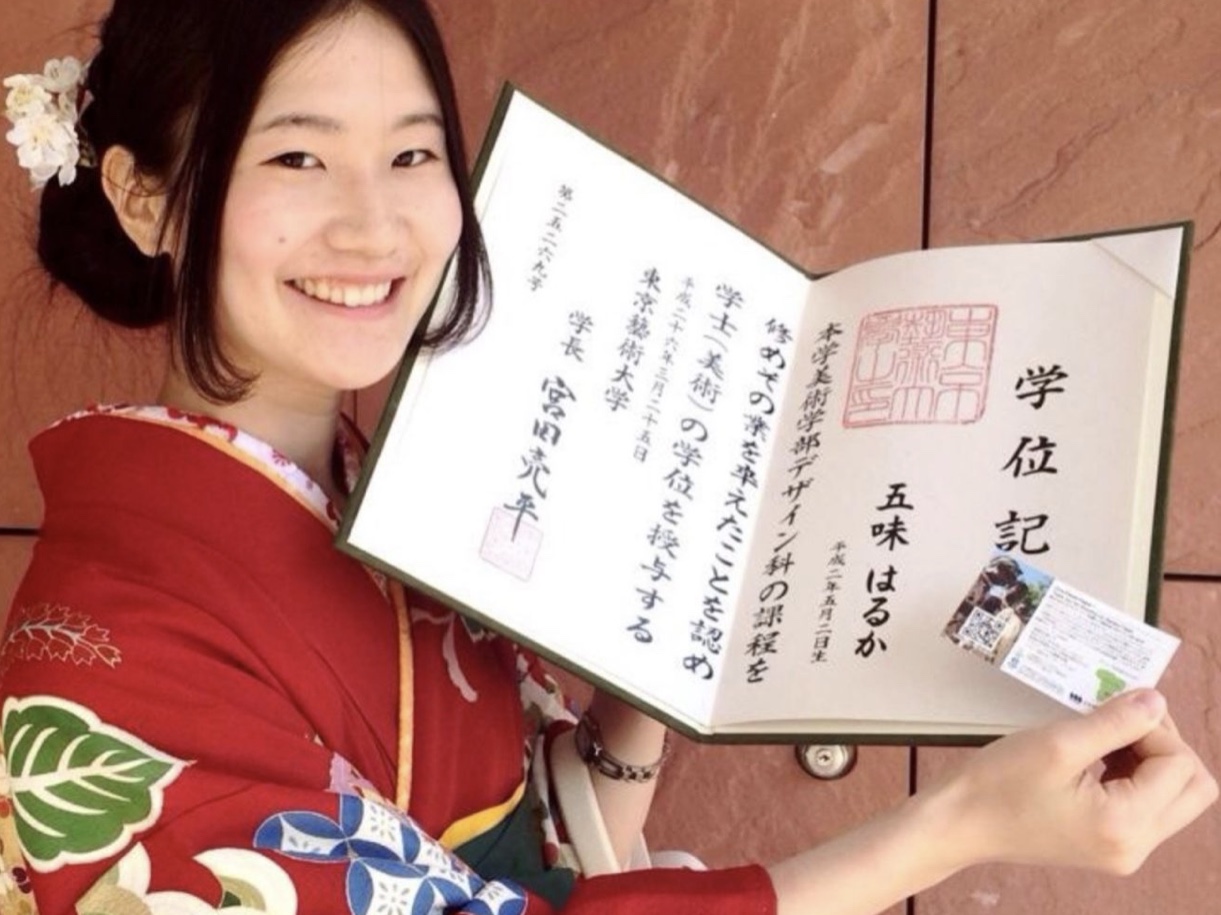 学位記
五味はるか
平成二年五月二日生
本学美術学部デザイン科の課程を
修めその業を卒えたことを認め
学士（美術）の学位を授与する
平成二十六年三月二十五日
東京藝術大学
学長 宮田亮平
第二五二六九号